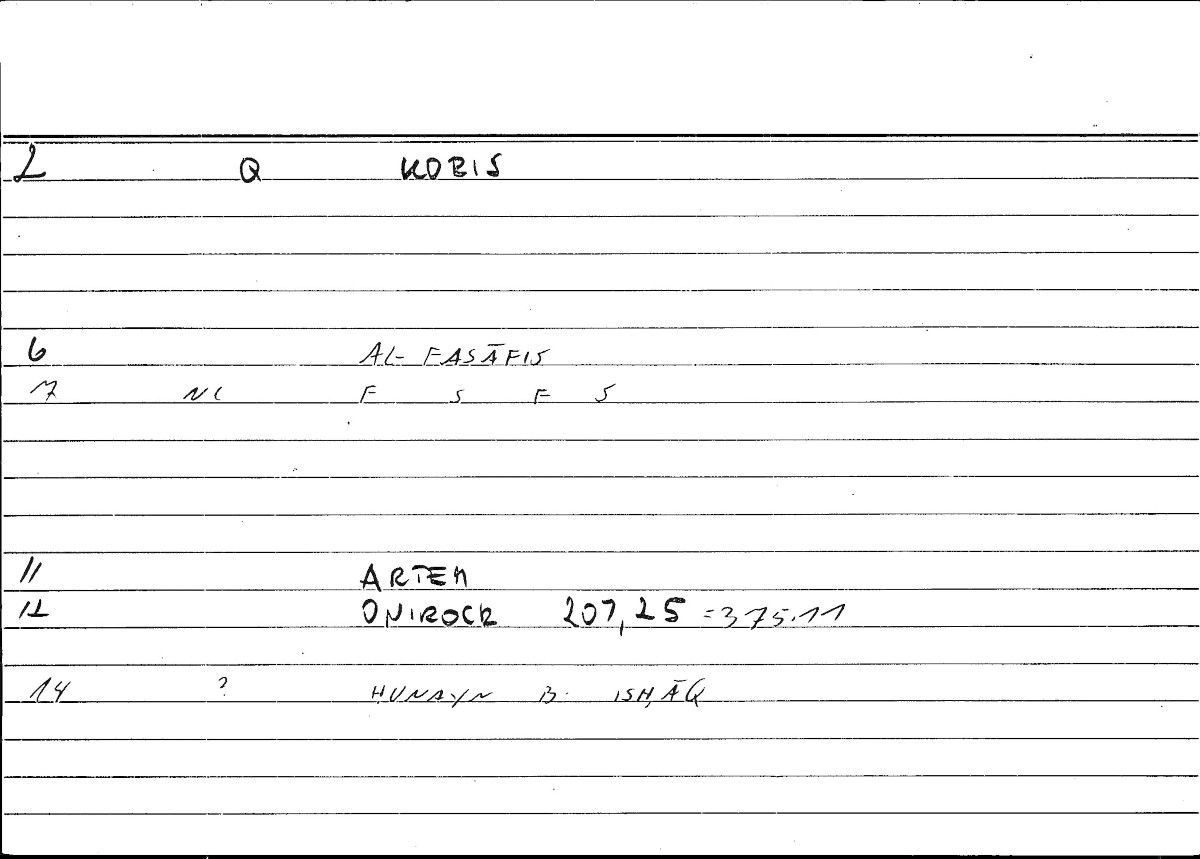 2 Q KOBIS
6 AL-FASĀFIS
7 NC F S F S
11 ARTEM
12 ONIROCR 207,25 =375.11
14 ? HUNAYN B. ISḤĀQ